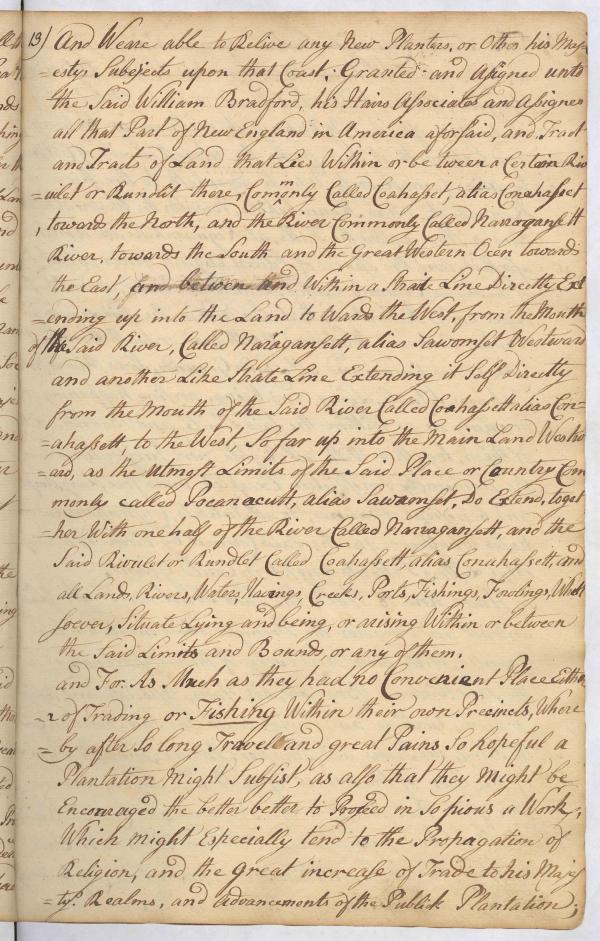 13) And Weare able to Relive any New Planters, or Other his Maj
=estys Subejects upon that Coast; Granted and Assigned unto
the Said William Bradford, his Hairs Associates and Assignes
all that Part of New England in America aforsaid, and Tract
and Tracts of Land that Lies Within or be tween a Certain Riv
=ulet or Rundlit there, Commonly Called Coahasset, alias Conahasset
, towards the North, and the River Commonly Called Narragansett
River, towards the South and the Great Western Ocen towards
the East, and betwen and Within a Strait Line Directly Ext
=ending up into the Land to Wards the West, from the Mouth
of the Said River, Called Naragansett, alias Sawomset Westward
and another Like Strate Line Extending it Self Directly
from the Mouth of the Said River Called Coahassett alias Con=
=ahassett, to the West, So far up into the Main Land Westw
=ard, as the utmost Limits of the Said Place or Country Com
monly called Pocanacutt, alias Sawamset, Do Extend, toget
=her With one half of the River Called Narragansett, and the
Said Rivulet or Rundlet Called Coahassett, alias Conahassett, and
all Lands, Rivers, Waters, Havings, Creeks, Ports, Fishings, Fowlings, What
soever, Situate Lying and being, or arising Within or between
the Said Limits and Bounds, or any of them.
and For. As Much as they had no Convenient Place Eithe
=r of Trading or Fishing Within their own Precincts, Where
=by after So long Travel and great Pains So hopeful a
Plantation Might Subsist, as also that they Might be
Encouraged the better better to Proceed in So pious a Work,
Which might Especially tend to the Propagation of
Religion, and the Great increase of Trade to his Majes
=tys. Realms, and advancements of the Publick Plantation;